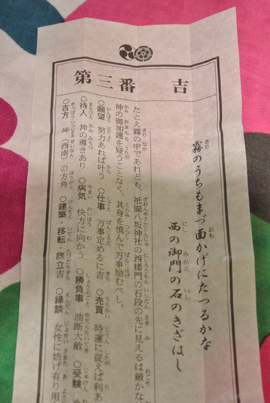 第三番 吉
霧のうちもまづ面かげにたつるかな
西の御門の石のきざはし
たとえ霧の中であれども、祇園八坂神社の西楼門の石段の先に見えるは厳かな
神の御加護を疑うことなく、其身を慎んで万事励むべし。
○願望 努力あれば叶う ○仕事 万事定めるに吉 ○売買 時運に従えば利あ
○待人 神の導きあり ○病気 快方に向かう ○勝負事 油断大敵 ○受験
○吉方 坤（西南）の方角 ○建築・移転・旅立吉 ○縁談 女性に妨げ有り用